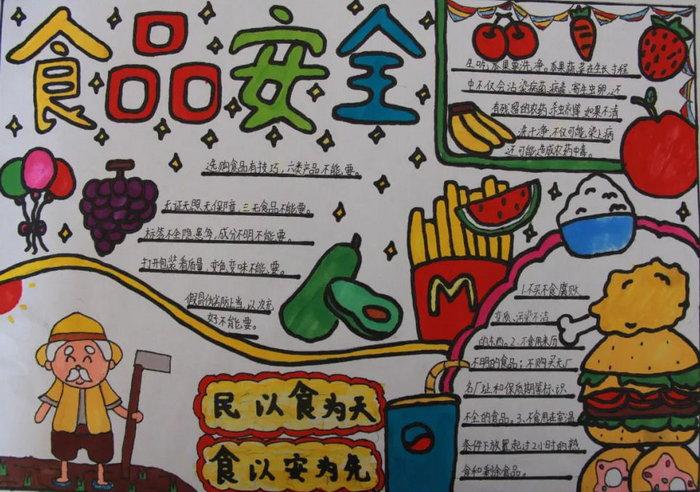 食品安全
生吃瓜果要洗净,瓜果蔬菜在生长过程
中不仅会沾染病菌、病毒、寄生虫卵,还
有残留的农药、杀虫剂等,如果不清
洗干净,不仅可能染上病
还可能造成农药中毒。
选购食品有技巧,六类产品不能要。
无证无照无保障,三无食品不能要。
标签不全隐患多,成分不明不能要。
打开包装看质量,变色变味不能要。
假冒伪劣防上当,以次充
好不能要。
M
1.不买不食腐败
变质、污染不洁
的东西。2.不食用来历
不明的食品;不购买无厂
名厂址和保质期等标识
不全的食品。3.不食用在室温
条件下放置超过2小时的熟
食和剩余食品。
民以食为天
食以安为先